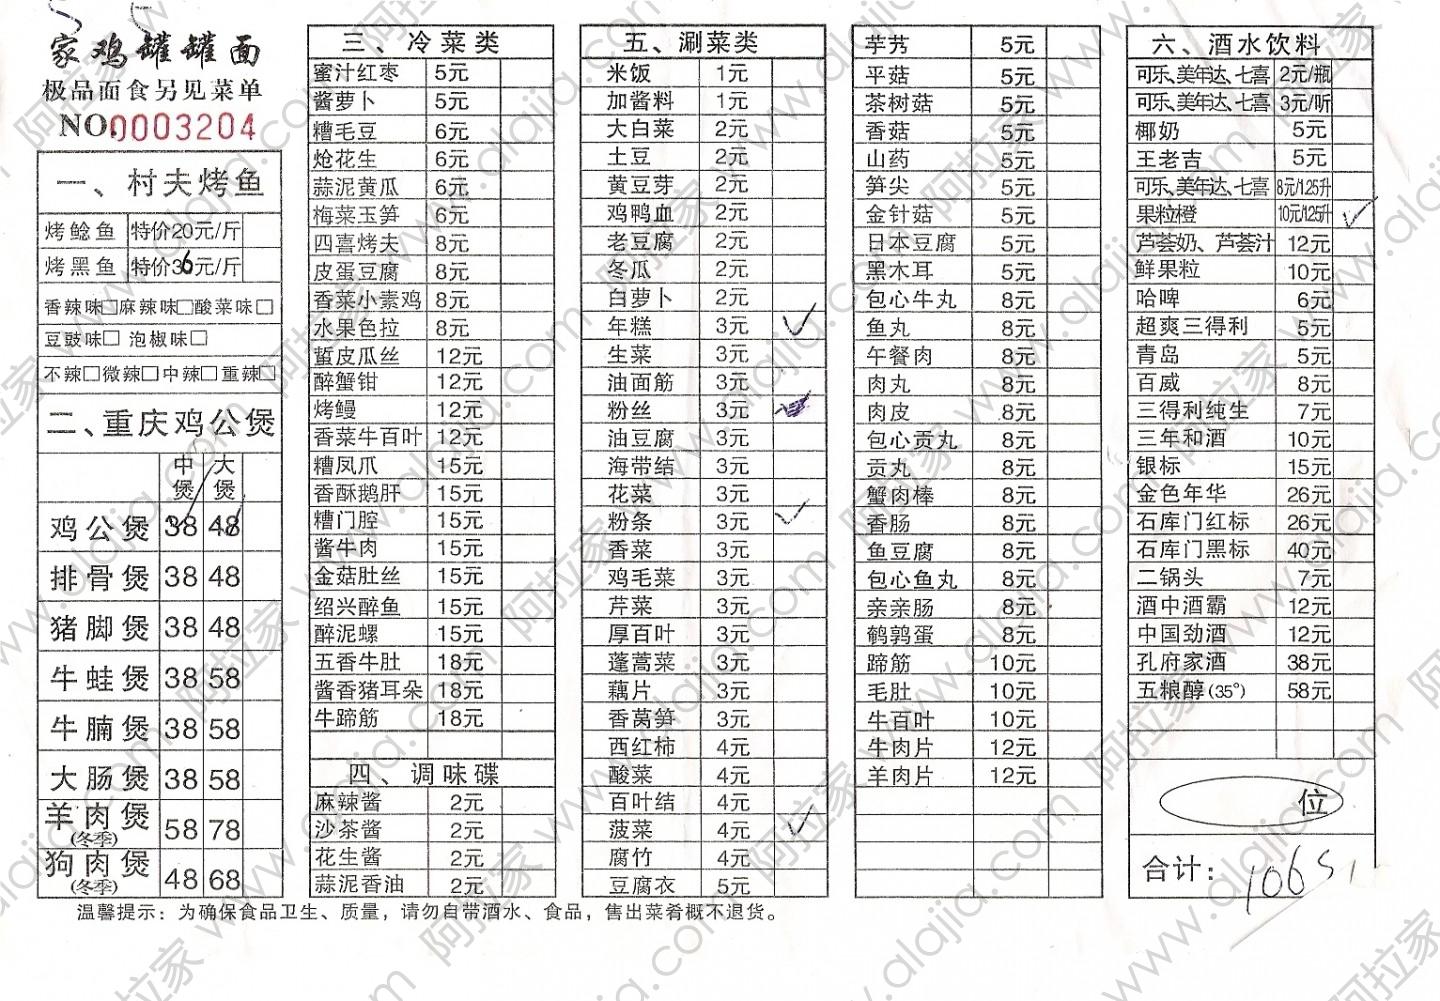 家鸡罐罐面
极品面食另见菜单
NO.0003204
一、村夫烤鱼
烤鲶鱼 特价20元/斤
烤黑鱼 特价36元/斤
香辣味□麻辣味□酸菜味□
豆豉味□ 泡椒味□
不辣□微辣□中辣□重辣□
二、重庆鸡公煲
中煲 大煲
鸡公煲 38 48
排骨煲 38 48
猪脚煲 38 48
牛蛙煲 38 58
牛腩煲 38 58
大肠煲 38 58
羊肉煲(冬季) 58 78
狗肉煲(冬季) 48 68
三、冷菜类
蜜汁红枣 5元
酱萝卜 5元
糟毛豆 6元
炝花生 6元
蒜泥黄瓜 6元
梅菜玉笋 6元
四喜烤夫 8元
皮蛋豆腐 8元
香菜小素鸡 8元
水果色拉 8元
蜇皮瓜丝 12元
醉蟹钳 12元
烤鳗 12元
香菜牛百叶 12元
糟凤爪 15元
香酥鹅肝 15元
糟门腔 15元
酱牛肉 15元
金菇肚丝 15元
绍兴醉鱼 15元
醉泥螺 15元
五香牛肚 18元
酱香猪耳朵 18元
牛蹄筋 18元
四、调味碟
麻辣酱 2元
沙茶酱 2元
花生酱 2元
蒜泥香油 2元
五、涮菜类
米饭 1元
加酱料 1元
大白菜 2元
土豆 2元
黄豆芽 2元
鸡鸭血 2元
老豆腐 2元
冬瓜 2元
白萝卜 2元
年糕 3元 ✓
生菜 3元
油面筋 3元
粉丝 3元
油豆腐 3元
海带结 3元
花菜 3元
粉条 3元 ✓
香菜 3元
鸡毛菜 3元
芹菜 3元
厚百叶 3元
蓬蒿菜 3元
藕片 3元
香莴笋 3元
西红柿 4元
酸菜 4元
百叶结 4元
菠菜 4元 ✓
腐竹 4元
豆腐衣 5元
芋艿 5元
平菇 5元
茶树菇 5元
香菇 5元
山药 5元
笋尖 5元
金针菇 5元
日本豆腐 5元
黑木耳 5元
包心牛丸 8元
鱼丸 8元
午餐肉 8元
肉丸 8元
肉皮 8元
包心贡丸 8元
贡丸 8元
蟹肉棒 8元
香肠 8元
鱼豆腐 8元
包心鱼丸 8元
亲亲肠 8元
鹌鹑蛋 8元
蹄筋 10元
毛肚 10元
牛百叶 10元
牛肉片 12元
羊肉片 12元
六、酒水饮料
可乐、美年达、七喜 2元/瓶
可乐、美年达、七喜 3元/听
椰奶 5元
王老吉 5元
可乐、美年达、七喜 8元/1.25升
果粒橙 10元/1.25升 ✓
芦荟奶、芦荟汁 12元
鲜果粒 10元
哈啤 6元
超爽三得利 5元
青岛 5元
百威 8元
三得利纯生 7元
三年和酒 10元
银标 15元
金色年华 26元
石库门红标 26元
石库门黑标 40元
二锅头 7元
酒中酒霸 12元
中国劲酒 12元
孔府家酒 38元
五粮醇(35°) 58元
位
合计：
温馨提示：为确保食品卫生、质量，请勿自带酒水、食品，售出菜肴概不退货。
阿拉家 www.alajia.com